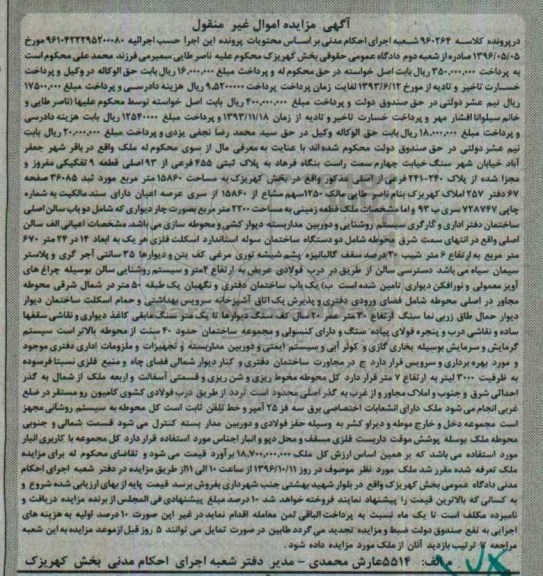 آگهی مزایده اموال غیر منقول
درپرونده کلاسه ۹۶۰۲۶۴ شعبه اجرای احکام مدنی بر اساس محتویات پرونده این اجرا حسب اجرائیه ۹۶۱۰۴۲۲۲۹۵۲۰۰۰۸۰ مورخ
۱۳۹۶/۰۵/۰۵ صادره از شعبه دوم دادگاه عمومی حقوقی بخش کهریزک محکوم علیه ناصر طایی سمیرمی فرزند محمد علی محکوم است
به پرداخت ۳۵۰,۰۰۰,۰۰۰ ریال بابت اصل خواسته در حق محکوم له و پرداخت مبلغ ۱۶,۰۰۰,۰۰۰ ریال بابت حق الوکاله در وکیل و پرداخت
خسارت تاخیر و تادیه از مورخ ۱۳۹۳/۶/۱۲ لغایت زمان پرداخت پرداخت ۹,۵۲۰۰۰۰ ریال هزینه دادرسی و پرداخت مبلغ ۱۷۵۰۰۰۰۰
ریال نیم عشر دولتی در حق صندوق دولت و پرداخت مبلغ ۴۰۰,۰۰۰,۰۰۰ ریال بابت اصل خواسته توسط محکوم علیها (ناصر طایی و
خانم سیلوانا افشار مهر و پرداخت خسارت تاخیر و تادیه از زمان ۱۳۹۳/۱۱/۱۸ و پرداخت مبلغ ۱۲۵۴۰۰۰۰ ریال بابت هزینه دادرسی
و پرداخت مبلغ ۱۸,۰۰۰,۰۰۰ ریال بابت حق الوکاله وکیل در حق سید محمد رضا نجفی یزدی و پرداخت مبلغ ۲۰,۰۰۰,۰۰۰ ریال بابت
نیم عشر دولتی در حق صندوق دولت محکوم شده‌اند با عنایت به معرفی مال از سوی محکوم له ملک واقع در باقر شهر جعفر
آباد خیابان شهر سنگ خیابت چهارم سمت راست بنگاه فرهاد به پلاک ثبتی ۴۵۵ فرعی از ۹۳ اصلی قطعه ۹ تفکیکی مفروز و
مجزا شده از پلاک ۲۴۰-۲۴۱ فرعی از اصلی مذکور واقع در بخش کهریزک به مساحت ۱۵۸۶۰ متر مربع مورد ثبت ۳۶۰۸۵ صفحه
۶۷ دفتر ۲۵۷ املاک کهریزک بنام ناصر طایی مالک ۱۲۵۰ سهم مشاع از ۱۵۸۶۰ از سری عرصه اعیان دارای سند مالکیت به شماره
چاپی ۷۲۸۷۴۷ سری ب ۹۳ و اما مشخصات ملک قطعه زمینی به مساحت ۲۲۰۰ متر مربع بصورت چار دیواری که شامل دو باب سالن اصلی
ساختمان دفتر اداری و گارگری سیستم روشنایی و دوربین مداربسته دیوار کشی و محوطه سازی می باشد. مشخصات اعیانی الف سالن
اصلی واقع در انتهای سمت شرق محوطه شامل دو دستگاه ساختمان سوله استاندارد اسکلت فلزی هر یک به ابعاد ۱۴ در ۲۴ متر ۶۷۰
متر مربع به ارتفاع ۶ متر شیب ۲۰ درصد سقف گالبانیزه پشم شیشه توری مرغی کف بتن و دیوارها ۳۵ سانتی آجر گری و پلاستر
سیمان سیاه می باشد دسترسی سالن از طریق در درب فولادی عریض به ارتفاع ۴ متر و سیستم روشنایی سالن بوسیله چراغ های
آویز معمولی و نورافکن دیواری تامین شده است ب) یک باب ساختمان دفتری و نگهبان یک طبقه ۵۰ متر در شمال شرقی محوطه
مجاور در اصلی محوطه شامل فضای ورودی دفتری و پذیرش یک اتاق آشپزخانه سرویس بهداشتی و حمام اسکلت ساختمان دیوار
دیوار حمال طاق زربی نما سنگ ارتفاع ۳۰ متر عمر ۲۰ سال کف سنگ دیوارها تا یک متر سنگ مابقی کاغذ دیواری و نقاشی سقفها
ساده و نقاشی درب و پنجره فولاد پیاده سنگ و دارای کنسولی و مجموعه ساختمان حدود ۴۰ سینت از محوطه بالاتر است سیستم
گرمایش و سرمایش بوسیله بخاری گازی و کولر آبی و سیستم ایمنی و دوربین مداربسته و تجهیزات و ملزومات اداری دفتری موجود
و مورد بهره برداری و سرویس قرار دارد ج در مجاورت ساختمان دفتری و کنار دیوار شمالی فضای چاه و منبع فلزی نسبتا فرسوده
به ظرفیت ۳۰۰۰ لیتر به ارتفاع ۷ متر قرار دارد کل محوطه مخوط ریزی و شن ریزی و قسمتی آسفالت و اربعه ملک از شمال به گذر
احداثی شرق و جنوب و املاک مجاور و از غرب به گذر اصلی محدود است تردد از طریق درب فولادی کشوی کامیون رو مستقر در ضلع
غربی انجام می شود ملک دارای انشعابات اختصاصی برق سه فز ۲۵ آمپر و خط تلفن ثابت است کل محوطه به سیستم روشنایی مجهز
است مجموعه دخل و خارج موطه و دیراو کشر به وسیله حفز فولادی و دوربین مدار بسته کنترل می شود قسمت شمالی و جنوبی
محوطه ملک بوسله پوشش موقت داربست فلزی مسقف و محل دپو و انبار اجناس مورد استفاده قرار دارد کل مجموعه با کاربری انبار
مورد استفاده می باشد که بر همین اساس ارزش کل ملک ۱۸,۷۰۰,۰۰۰,۰۰۰ برآورد قیمت می شود و تقاضای محکوم له برای مزایده
ملک تعرفه شده مقرر شد ملک مورد نظر موصوف در روز ۱۳۹۶/۱۰/۱۱ از ساعت ۱۰ الی ۱۱ از طریق مزایده در دفتر شعبه اجرای احکام
مدنی دادگاه عمومی بخش کهریزک واقع در بلوار شهید بهشتی جنب شهرداری بفروش برسد قیمت پایه از بهای ارزیابی شده شروع و
به کسانی که بالاترین قیمت را پیشنهاد نمایند فروخته خواهد شد ۱۰ درصد مبلغ پیشنهادی فی المجلس از برنده مزایده دریافت و
نامبرده مکلف است تا یک ماه نسبت به پرداخت الباقی ثمن معامله اقدام نماید در غیر این صورت ۱۰ درصد اولیه به هزینه های
اجرایی به نفع صندوق دولت ضبط و مزایده تجدید می گردد طابین در صورت تمایل می توانند ۵ روز قبل از موعد مزایده به این شعبه
مراجعه تا ترتیب بازدید آنان از ملک مورد مزایده داده شود.
م الف: ۵۵۱۴ عارش محمدی - مدیر دفتر شعبه اجرای احکام مدنی بخش کهریزک